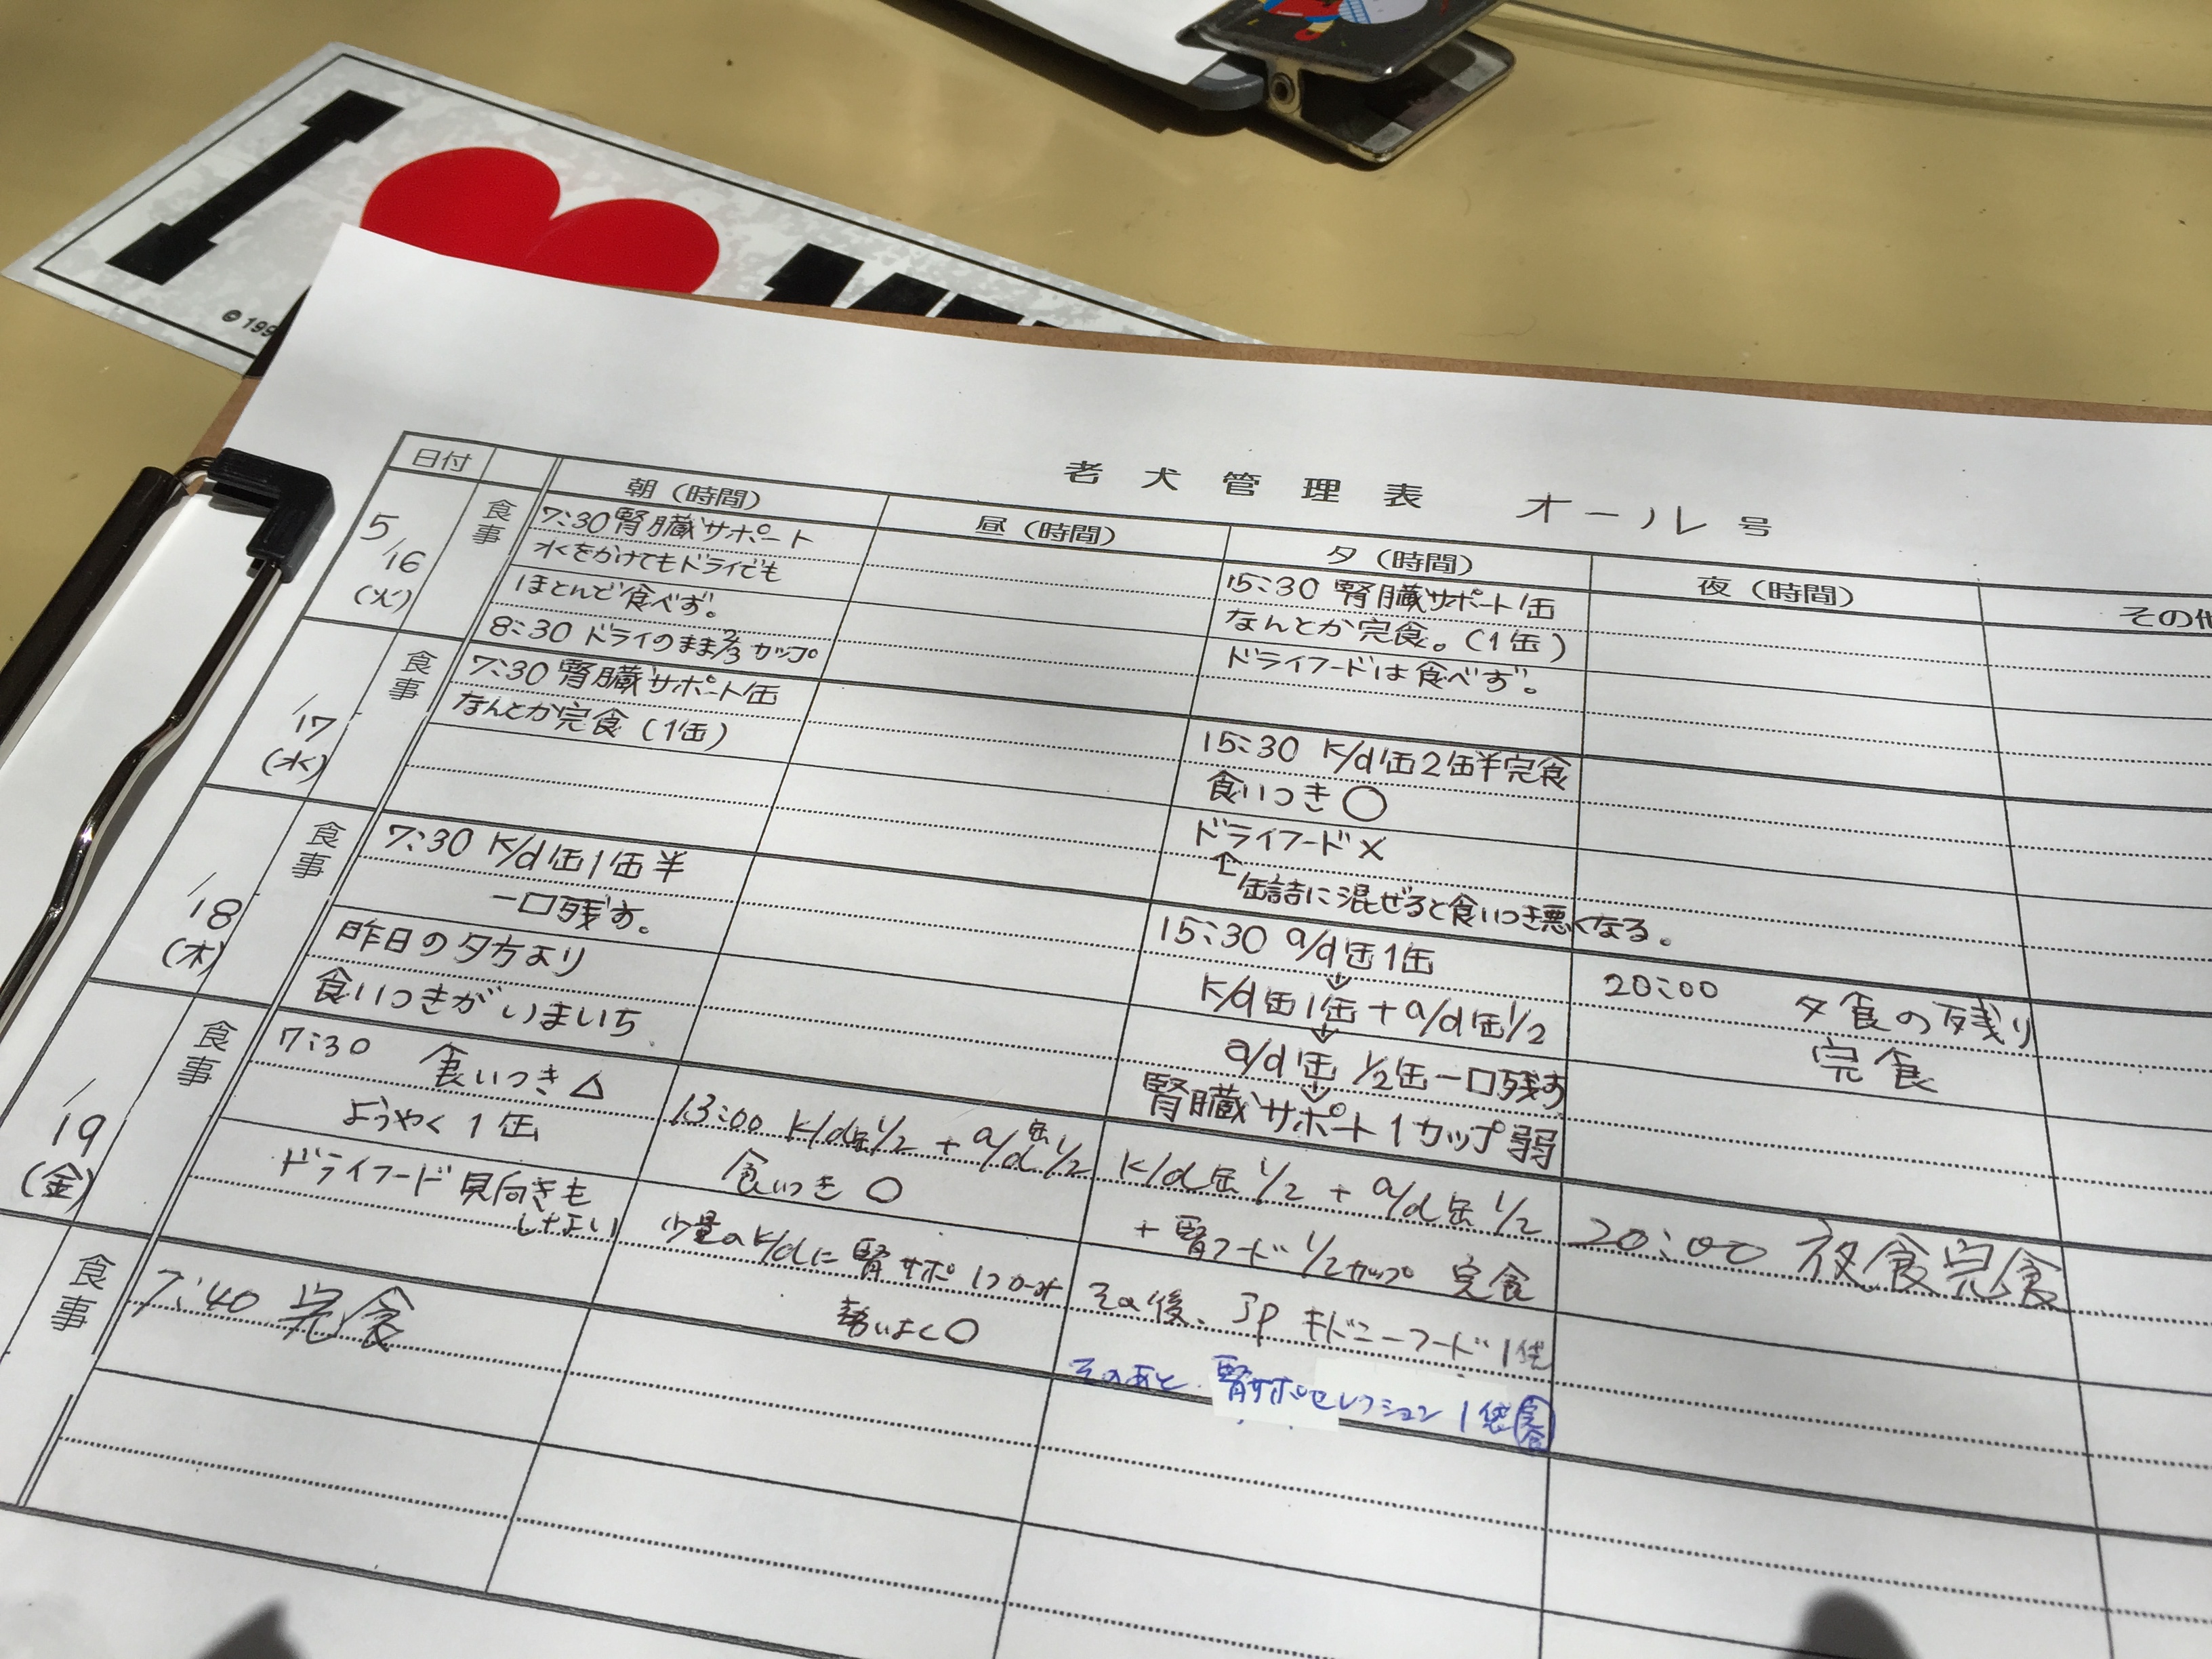 I ♥
© 199
老犬管理表 オール号
日付
朝（時間）
昼（時間）
夕（時間）
夜（時間）
その他
5/16
(火)
食事
7:30 腎臓サポート
水をかけてもドライでも
ほとんど食べず。
8:30 ドライのまま2/3カップ
15:30 腎臓サポート缶
なんとか完食。(1缶)
ドライフードは食べず。
/17
(水)
食事
7:30 腎臓サポート缶
なんとか完食(1缶)
15:30 k/d缶2缶半完食
食いつき○
ドライフード×
↑缶詰に混ぜると食いつき悪くなる。
/18
(木)
食事
7:30 k/d缶1缶半
一口残す。
昨日の夕方より
食いつきがいまいち
15:30 a/d缶1缶
↓
k/d缶1缶+a/d缶1/2
↓
a/d缶 1/2缶一口残す
↓
腎臓サポート1カップ弱
20:00 夕食の残り
完食
/19
(金)
食事
7:30 食いつき△
ようやく1缶
ドライフード見向きも
しない
13:00 k/d缶1/2+a/d缶1/2
食いつき○
少量のk/dに腎サポ
勢いよく○
k/d缶1/2+a/d缶1/2
+腎フード1/2カップ 完食
その後、JP キドニーフード1袋
そのあと、腎サポセレクション1袋完食
20:00 夜食完食
食事
7:40 完食